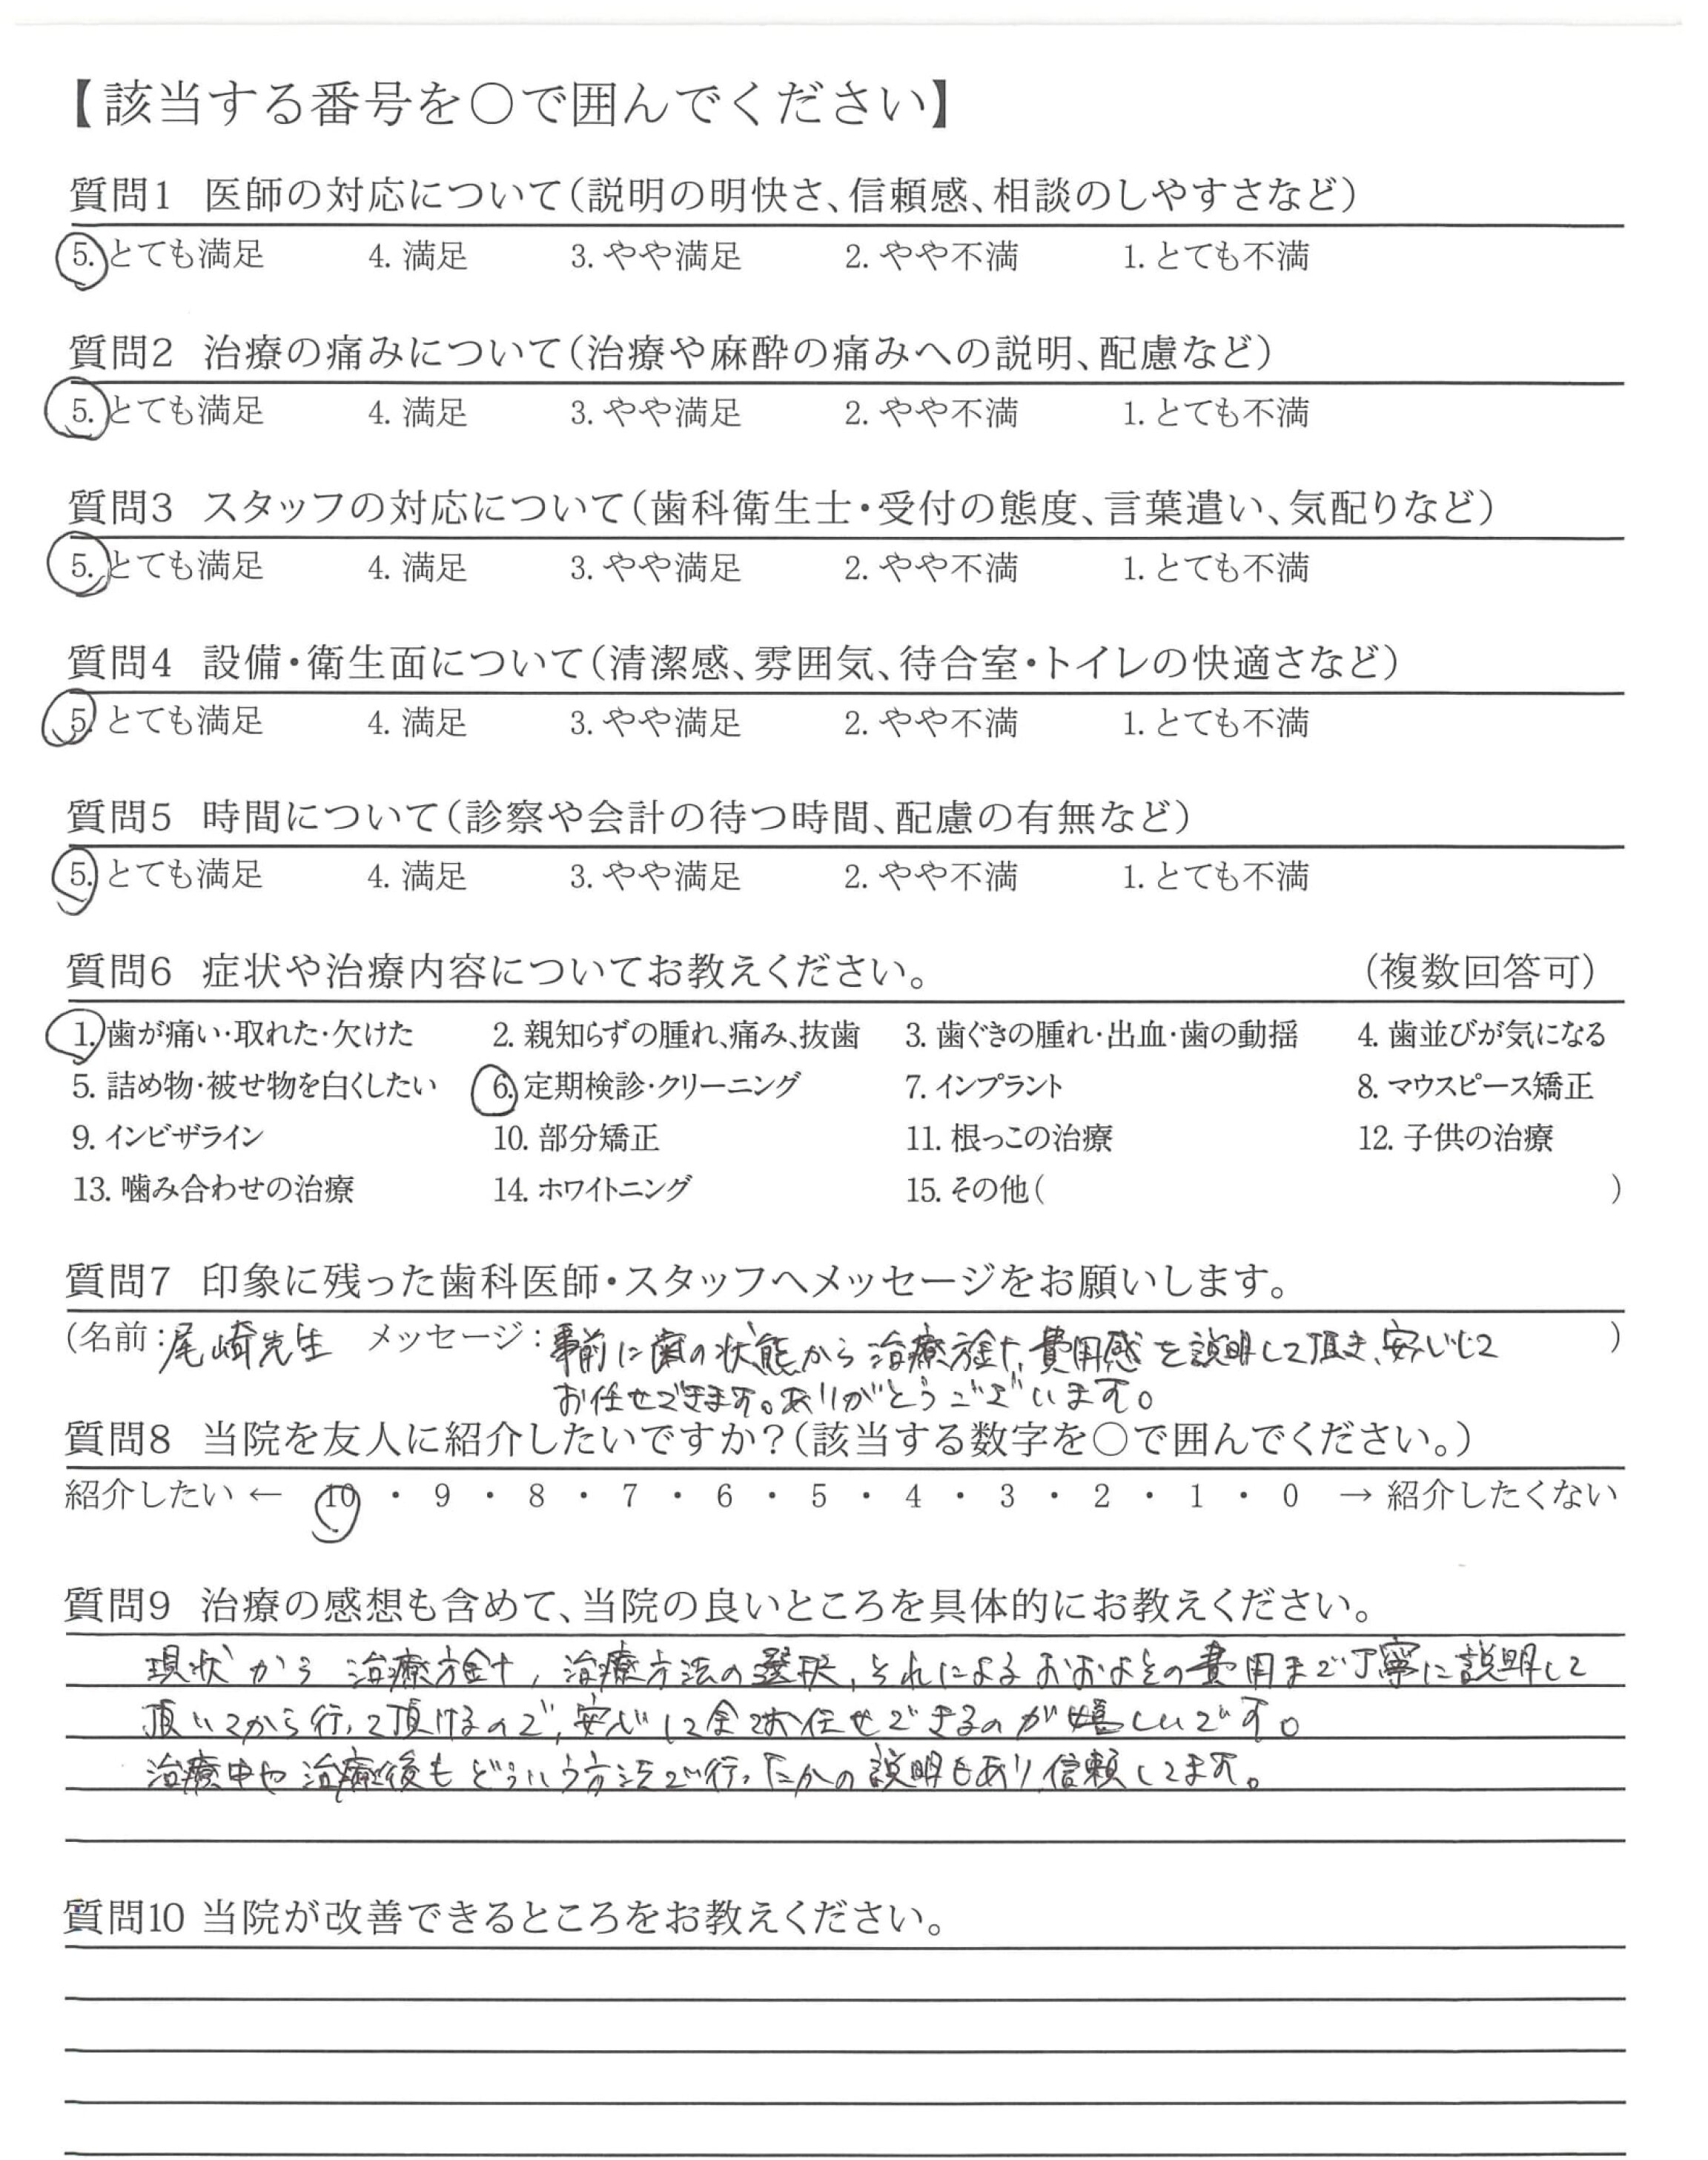 【該当する番号を○で囲んでください】
質問1 医師の対応について(説明の明快さ、信頼感、相談のしやすさなど)
5. とても満足 4. 満足 3. やや満足 2. やや不満 1. とても不満
質問2 治療の痛みについて(治療や麻酔の痛みへの説明、配慮など)
5. とても満足 4. 満足 3. やや満足 2. やや不満 1. とても不満
質問3 スタッフの対応について(歯科衛生士・受付の態度、言葉遣い、気配りなど)
5. とても満足 4. 満足 3. やや満足 2. やや不満 1. とても不満
質問4 設備・衛生面について(清潔感、雰囲気、待合室・トイレの快適さなど)
5. とても満足 4. 満足 3. やや満足 2. やや不満 1. とても不満
質問5 時間について(診察や会計の待つ時間、配慮の有無など)
5. とても満足 4. 満足 3. やや満足 2. やや不満 1. とても不満
質問6 症状や治療内容についてお教えください。 (複数回答可)
1. 歯が痛い・取れた・欠けた 2. 親知らずの腫れ、痛み、抜歯 3. 歯ぐきの腫れ・出血・歯の動揺 4. 歯並びが気になる
5. 詰め物・被せ物を白くしたい 6. 定期検診・クリーニング 7. インプラント 8. マウスピース矯正
9. インビザライン 10. 部分矯正 11. 根っこの治療 12. 子供の治療
13. 噛み合わせの治療 14. ホワイトニング 15. その他( )
質問7 印象に残った歯科医師・スタッフへメッセージをお願いします。
(名前:尾崎先生 メッセージ:事前に歯の状態から治療方針、費用感を説明して頂き、安心して )
お任せできます。ありがとうございます。
質問8 当院を友人に紹介したいですか?(該当する数字を○で囲んでください。)
紹介したい ← 10 ・ 9 ・ 8 ・ 7 ・ 6 ・ 5 ・ 4 ・ 3 ・ 2 ・ 1 ・ 0 → 紹介したくない
質問9 治療の感想も含めて、当院の良いところを具体的にお教えください。
現状から治療方針、治療方法の選択、それによるおおよその費用まで丁寧に説明して
頂いてから行って頂けるので、安心して全てお任せできるのが嬉しいです。
治療中や治療後もどういう方法で行ったかの説明もあり信頼してます。
質問10 当院が改善できるところをお教えください。